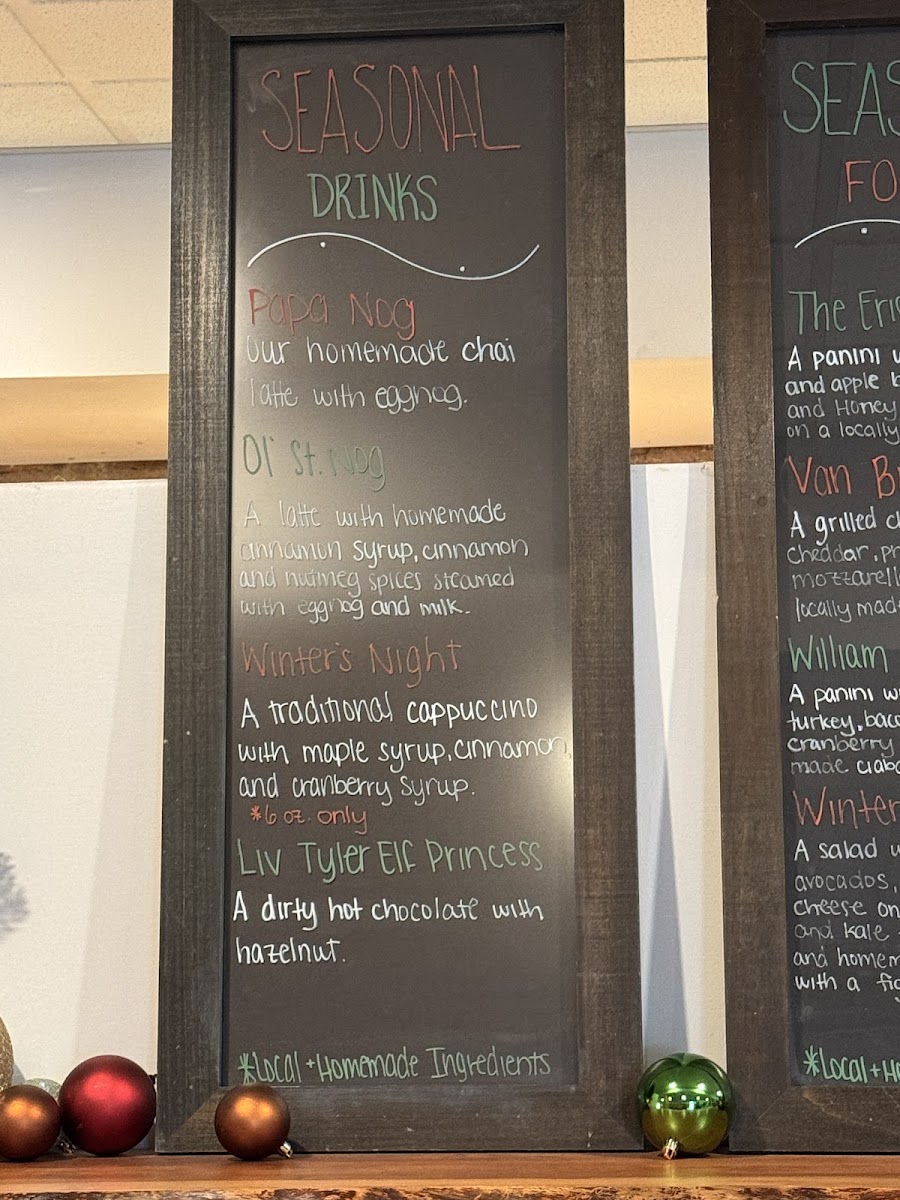 SEASONAL
DRINKS
Papa Nog
Our homemade chai
latte with eggnog.
Ol' St. Nog
A latte with homemade
cinnamon syrup, cinnamon
and nutmeg spices steamed
with eggnog and milk.
Winter's Night
A traditional cappuccino
with maple syrup, cinnamon,
and cranberry syrup.
*6 oz. only
Liv Tyler Elf Princess
A dirty hot chocolate with
hazelnut.
*Local + Homemade Ingredients
The
A panini
and apple
and Honey
on a locally
Van
A grilled
cheddar,
locally
William
A panini
turkey,
cranberry
made
A salad
avocados,
cheese on
and kale
and
with a
*Local +